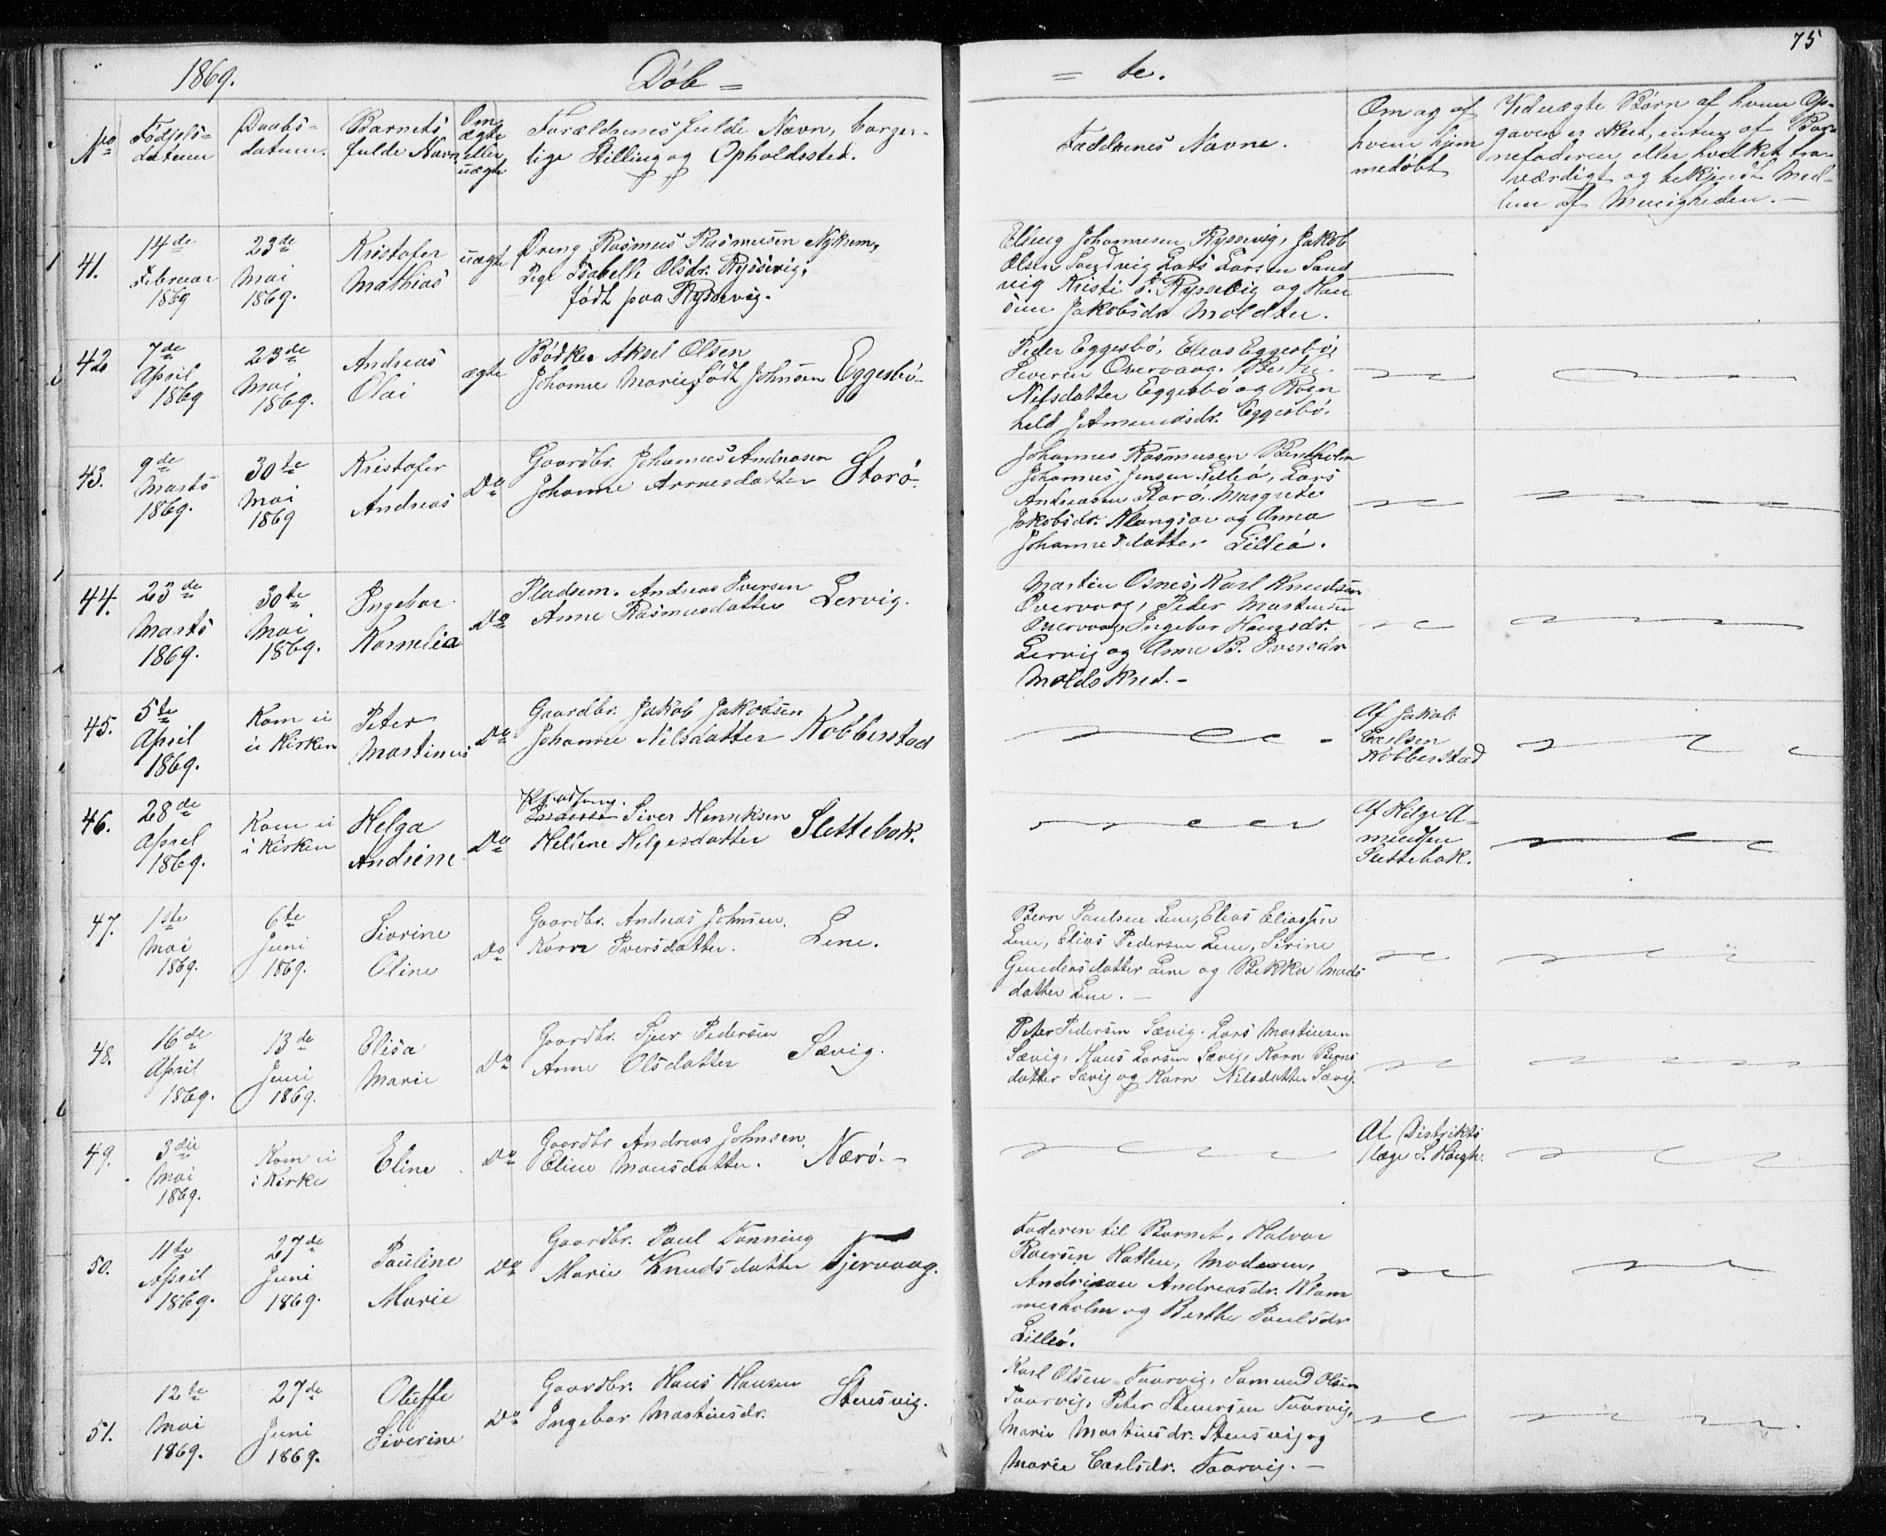 75
1869. Döb = = te.
No
Fødsels-
datum
Daabs-
datum.
Barnets
fulde Navn
Om
ægte
eller
uægte
Forældrenes fulde Navn, borger-
lige Stilling og Opholdssted.
Faddrenes Navne.
Om og af
hvem hjem
medøbt
Ved uægte Børn af hvem Op-
gaven er skeet, enten af Bar-
nefaderen eller hvilket tro-
værdigt og bekjendt Med-
lem af Menigheden. —
41.
14de
Februar
1869
23de
Mai
1869.
Kristofer
Mathias
uægte
Dreng Rasmus Rasmusen Nykrem,
Pige Isabelle Olsdr. Ryssevig,
født paa Ryssevig.
Elling Johannesen Ryssevig, Jakob
Olsen Sandvig Lars Larsen Sand
vig Kristi Ryssevig og Han
sine Jakobsdr Moldtu.
42
7de
April
1869
23de
Mai
1869.
Andreas
Olai
ægte
Bødker Aksel Olsen
Johanne Marie, født Johnsen Eggesbø
Peder Eggesbø, Elias Eggesbø,
Severin Overvaag. Berthe
Nilsdatter Eggesbø og Ragn
hild J. Amundsdr. Eggesbø.
43.
9de
Marts
1869.
30te
Mai
1869
Kristofer
Andreas
Do
Gaardbr. Johannes Andreasen
Johanne Arnesdatter Storø.
Johannes Rasmusen Bentholm
Johannes Jensen Lilleø, Lars
Andreasen Storø. Margrete
Jakobsdr. Klungsør og Anna
Johannesdatter Lilleø.
44.
23de
Marts
1869.
30te
Mai
1869.
Ingebor
Kornelia
Do
Pladsm. Andreas Iversen
Anne Rasmusdatter Lervig.
Martin Osnes, Karl Knudsen
Overvaag, Peder Martinsen
Overvaag, Ingebor Hansdr.
Lervig og Anne B. Iversdr
Moldskred. —
45.
5te
April
1869.
Kom ei
i Kirken
Peter
Martinus
Do
Gaardbr. Jakob Jakobsen
Johanne Nilsdatter Kobberstad
Af Jakob
Carlsen
Kobberstad
46.
28de
April
1869.
Kom ei
i Kirken
Helga
Andrine
Do
Siver Henriksen
Heline Helgesdatter Slettebak.
Af Helge A-
mundsen
Slettebak.
47.
1ste
Mai
1869.
6te
Juni
1869.
Sivrine
Oline
Do
Gaardbr. Andreas Johnsen.
Karn Iversdatter. Lene.
Bern Paulsen Lene, Elias Eliassen
Lene, Elias Pedersen Lene, Sirine
Gundersdatter Lene og Bekka Mads
datter Lene. —
48.
16de
April
1869.
13de
Juni
1869.
Elisa
Marie
Do
Gaardbr. Sjur Pedersen
Anne Olsdatter Sævig.
Peter Pedersen Sævig. Lars Martinsen
Sævig, Hans Larsen Sævig, Karn Berns
datter Sævig og Karn Nilsdatter Sævig.
49.
3die
Mai
1869.
Kom ei
i Kirke
Eline
Do
Gaardbr Andreas Johnsen.
Eline Monsdatter. Nærø. —
Af Distrikts
læge S. Høegh.
50.
11te
April
1869.
27de
Juni
1869.
Pauline
Marie
Do
Gaardbr. Paul Tønning
Marie Knudsdatter Tjervaag.
Faderen til Barnet, Halvor
Roersen Hatlen, Moderen,
Andriane Andreasdr. Klom
mesholm og Berthe Paulsdr
Lilleø.
51.
12te
Mai
1869.
27de
Juni
1869.
Oluffe
Elli
Siverine
Do
Gaardbr. Hans Hansen
Ingebor Martinsdr. Stensvig.
Karl Olsen Taarvig, Samund Olsen
Taarvig, Peter Steversen Taarvig,
Marie Martinsdr. Stensvig og
Marie Carlsdr. Taarvig. —